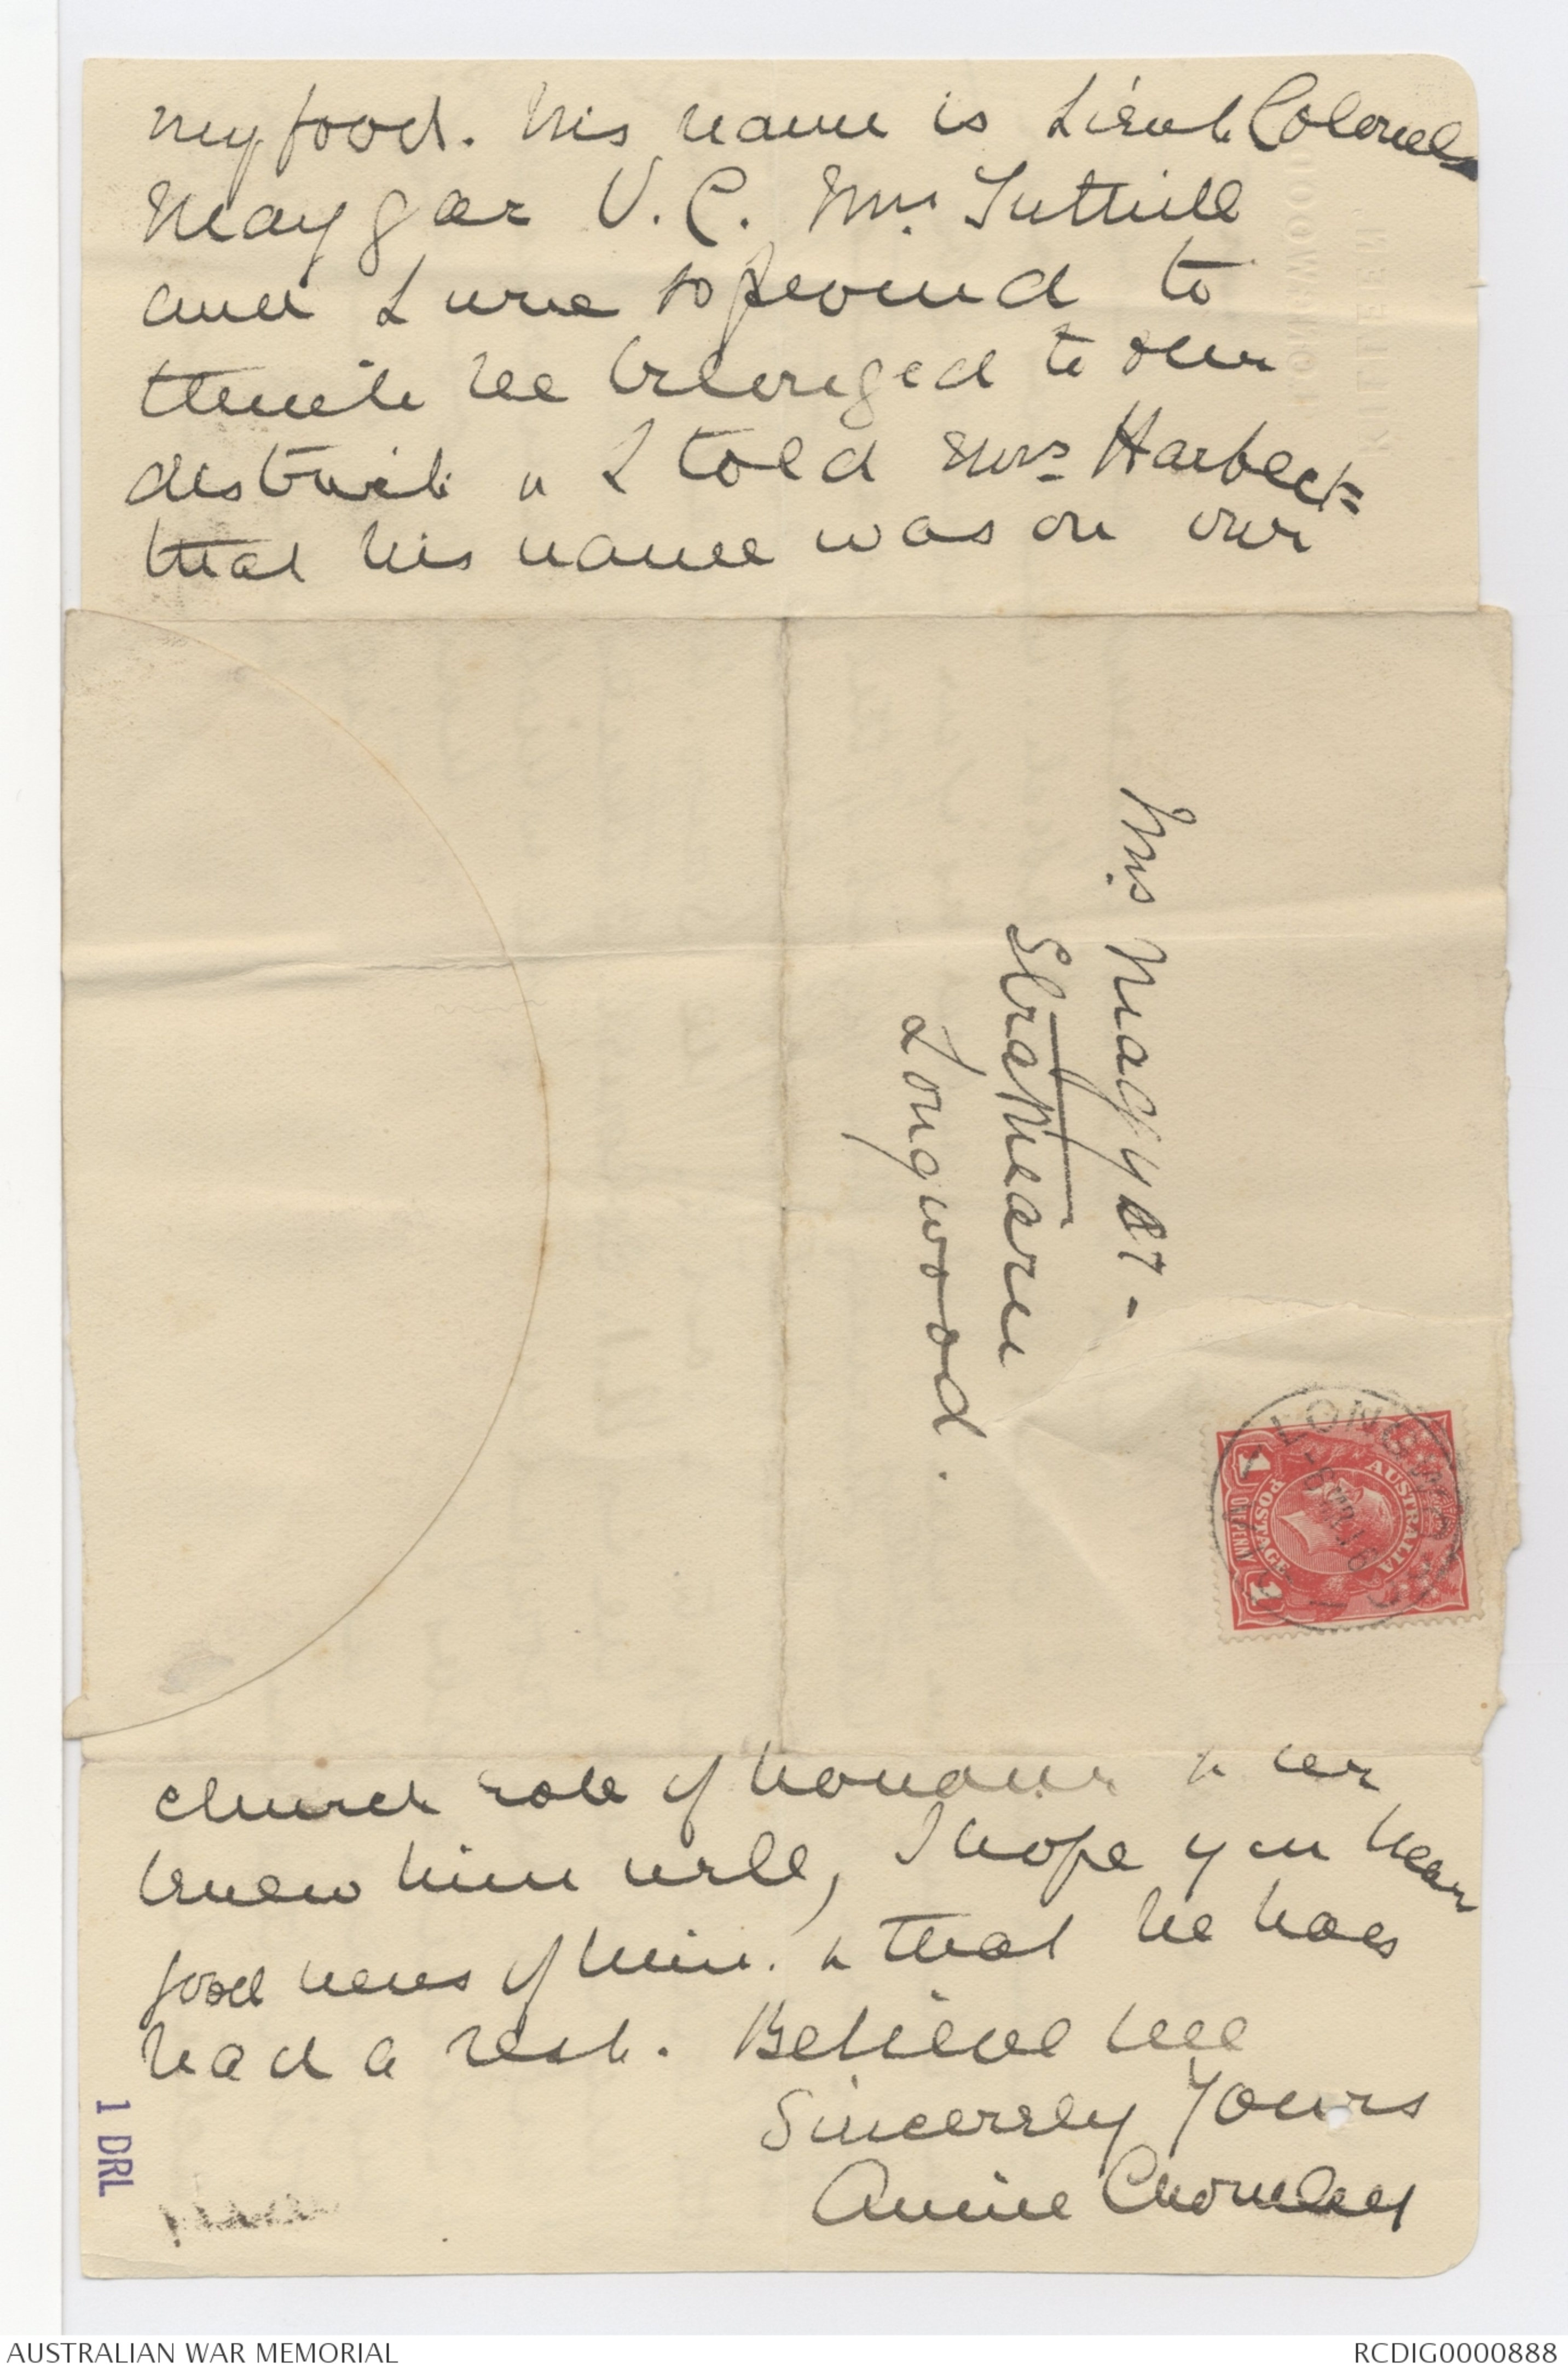 my food. His name is Lieut Colonel
Maygar V.C. Mrs Tuthill
and I were so proud to
think he belonged to our
district & I told Mrs Harbeck
that his name was on our
Mrs Maygar -
Strathearn
Longwood.
LONGWOOD
AUSTRALIA
POSTAGE
1 ONE PENNY 1
church role of honour & we
knew him well, I hope you hear
good news of him. & that he has
had a rest. Believe me
Sincerely Yours
Annie Chomley
1 DRL
AUSTRALIAN WAR MEMORIAL
RCDIG0000888